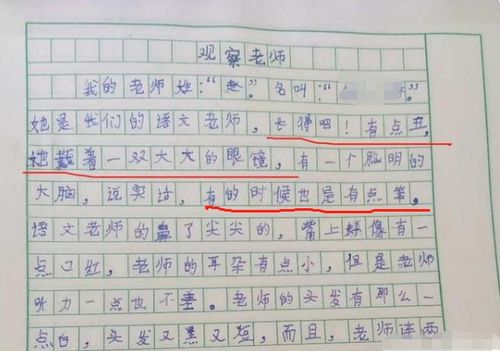 观察老师
我的老师姓：“赵”。名叫：“”。
她是我们的语文老师，长得吧！有点丑，
她戴着一双大大的眼镜，有一个脑明的
大脑，说实话，有的时候也是有点笨。
语文老师的鼻了尖尖的，嘴上好像有一
点口红，老师的耳朵有点小，但是老师
听力一点也不差。老师的头发有那么一
点白，头发又黑又短，而且，老师连两